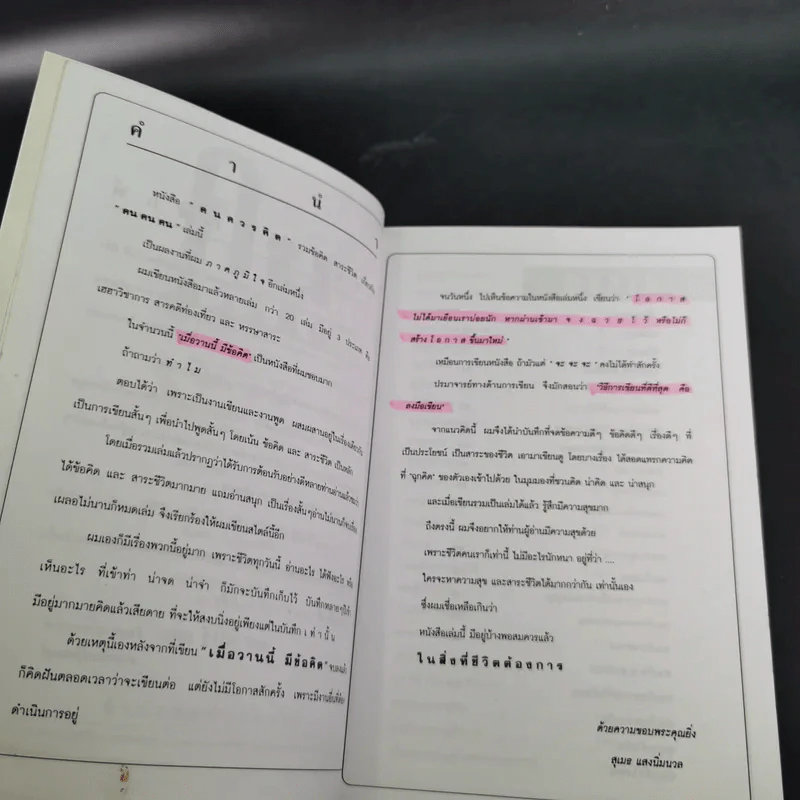 คำนำ
หนังสือ " ค น ค ว ร คิ ด " รวมข้อคิด สาระชีวิต เกี่ยวกับ
" คน คน คน " เล่มนี้
เป็นผลงานที่ผม ภ า ค ภู มิ ใ จ อีกเล่มหนึ่ง
ผมเขียนหนังสือมาแล้วหลายเล่ม กว่า 20 เล่ม มีอยู่ 3 ประเภท คือ
เฮฮาวิชาการ สารคดีท่องเที่ยว และ หรรษาสาระ
ในจำนวนนี้ "เมื่อวานนี้ มีข้อคิด" เป็นหนังสือที่ผมชอบมาก
ถ้าถามว่า ทำ ไ ม
ตอบได้ว่า เพราะเป็นงานเขียนและงานพูด ผสมผสานอยู่ในเรื่องเดียวกัน
เป็นการเขียนสั้นๆ เพื่อนำไปพูดสั้นๆ โดยเน้น ข้อคิด และ สาระชีวิต เป็นหลัก
โดยเมื่อรวมเล่มแล้วปรากฏว่าได้รับการต้อนรับอย่างดีหลายท่านอ่านแล้วชมว่า
ได้ข้อคิด และ สาระชีวิตมากมาย แถมอ่านสนุก เป็นเรื่องสั้นๆอ่านไม่นานก็จบเรื่อง
เผลอไม่นานก็หมดเล่ม จึงเรียกร้องให้ผมเขียนสไตล์นี้อีก
ผมเองก็มีเรื่องพวกนี้อยู่มาก เพราะชีวิตทุกวันนี้ อ่านอะไร ได้ฟังอะไร หรือ
เห็นอะไร ที่เข้าท่า น่าจด น่าจำ ก็มักจะบันทึกเก็บไว้ บันทึกหลายๆปีเข้า
มีอยู่มากมายคิดแล้วเสียดาย ที่จะให้สงบนิ่งอยู่เพียงแต่ในบันทึก เ ท่ า นั้ น
ด้วยเหตุนี้เองหลังจากที่เขียน "เ มื่ อ ว า น นี้ มี ข้ อ คิ ด" จบลงแล้ว
ก็คิดฝันตลอดเวลาว่าจะเขียนต่อ แต่ยังไม่มีโอกาสสักครั้ง เพราะมีงานอื่นที่ต้อง
ดำเนินการอยู่
จนวันหนึ่ง ไปเห็นข้อความในหนังสือเล่มหนึ่ง เขียนว่า " โ อ ก า ส
ไม่ได้มาเยือนเราบ่อยนัก หากผ่านเข้ามา จ ง ฉ ว ย ไ ว้ หรือไม่ก็
สร้าง โ อ ก า ส ขึ้นมาใหม่ "
เหมือนการเขียนหนังสือ ถ้ามัวแต่ " จะ จะ จะ " คงไม่ได้ทำสักครั้ง
ปรมาจารย์ทางด้านการเขียน จึงมักสอนว่า "วิธีการเขียนที่ดีที่สุด คือ
ลงมือเขียน"
จากแนวคิดนี้ ผมจึงได้นำบันทึกที่จดข้อความดีๆ ข้อคิดดีๆ เรื่องดีๆ ที่
เป็นประโยชน์ เป็นสาระของชีวิต เอามาเขียนดู โดยบางเรื่อง ได้สอดแทรกความคิด
ที่ "ฉุกคิด" ของตัวเองเข้าไปด้วย ในมุมมองที่ชวนคิด น่าคิด และ น่าสนุก
และเมื่อเขียนรวมเป็นเล่มได้แล้ว รู้สึกมีความสุขมาก
ถึงตรงนี้ ผมจึงอยากให้ท่านผู้อ่านมีความสุขด้วย
เพราะชีวิตคนเราก็เท่านี้ ไม่มีอะไรนักหนา อยู่ที่ว่า ....
ใครจะหาความสุข และสาระชีวิตได้มากกว่ากัน เท่านั้นเอง
ซึ่งผมเชื่อเหลือเกินว่า
หนังสือเล่มนี้ มีอยู่บ้างพอสมควรแล้ว
ใ น สิ่ ง ที่ ชี วิ ต ต้ อ ง ก า ร
ด้วยความขอบพระคุณยิ่ง
สุเมธ แสงนิ่มนวล